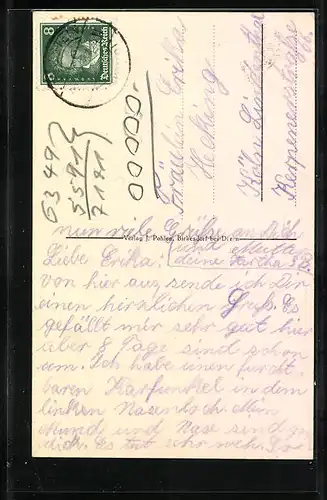 8 Deutsches Reich 8
Fräulein Erika
Hecking
Köln Lindenthal
Kerpenerstraße
6349
3591
7191
00000.
nun viele Grüße an Dich
und Mutter
deine Hertha
Verlag J. Pohlen, Birkesdorf bei Düren
Liebe Erika!
von hier aus sende ich Dir
einen herzlichen Gruß. Es
gefällt mir sehr gut hier
aber 8 Tage sind schon
um. Ich habe einen furcht
baren Karfunkel in dem
linken Nasenloch. Mein
Mund und Nase sind
dick. Es tut sehr weh.